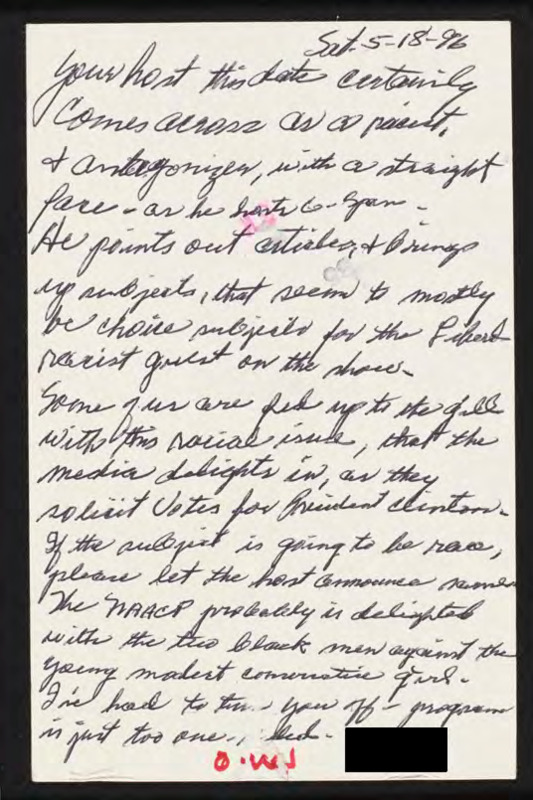 Sat. 5-18-96
your host this date certainly
comes across as a racist,
& antagonizer, with a straight
face - as he hosts C-Span -
He points out articles, & brings
up subjects, that seem to mostly
be choice subjects for the Liberal
racist guest on the show -
Some of us are fed up to the gills
with this racial issue, that the
media delights in, as they
solicit Votes for President Clinton -
If the subject is going to be race,
please let the host announce same
The NAACP probably is delighted
with the two black men against the
young modest conservative girl -
I've had to turn you off - program
is just too one